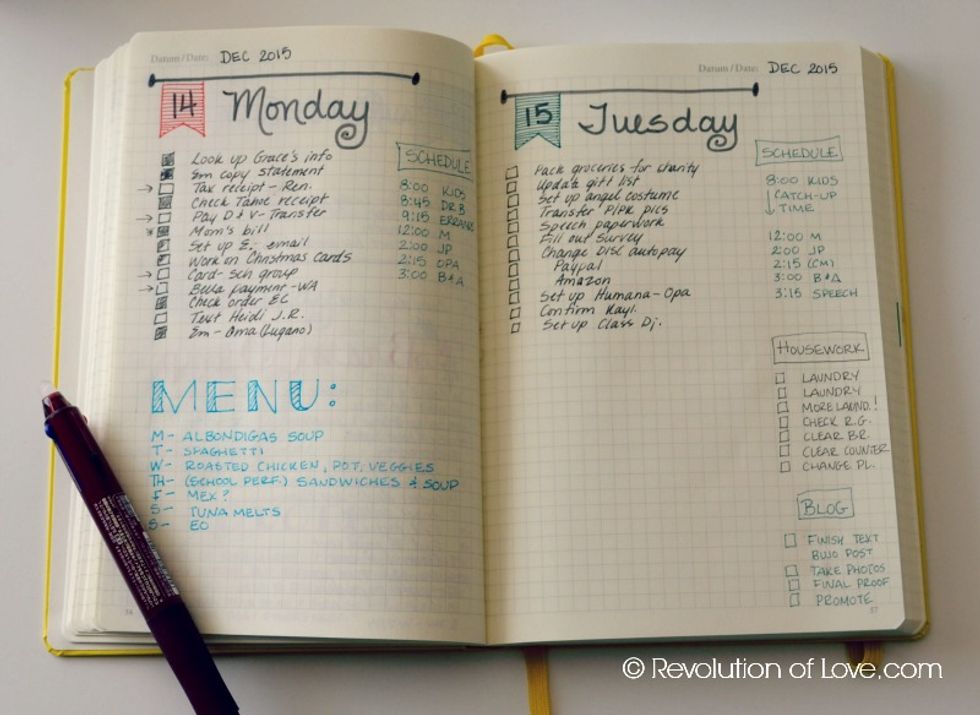 Datum / Date: DEC 2015
14 Monday
Look up Grace's info
Em copy statement
Tax receipt - Ren.
Check Tahoe receipt
Pay D & V - Transfer
Mom's bill
Set up E. email
Work on Christmas cards
Card - sch group
Bella payment - WA
Check order EC
Text Heidi J.R.
Em - Oma (Lugano)
SCHEDULE
8:00 KIDS
8:45 DR. B
9:15 ERRANDS
12:00 M
2:00 JP
2:15 OPA
3:00 B & A
MENU:
M - ALBONDIGAS SOUP
T - SPAGHETTI
W - ROASTED CHICKEN, POT, VEGGIES
TH - (SCHOOL PERF.) SANDWICHES & SOUP
F - MEX?
S - TUNA MELTS
S - EO
Datum / Date: DEC 2015
15 Tuesday
Pack groceries for charity
Update gift list
Set up angel costume
Transfer pics
Speech paperwork
Fill out survey
Change DISC autopay
Paypal
Amazon
Set up Humana - Opa
Confirm Kayl.
Set up Class Dj.
SCHEDULE
8:00 KIDS
CATCH-UP
TIME
12:00 M
2:00 JP
2:15 (CM)
3:00 B & A
3:15 SPEECH
HOUSEWORK
LAUNDRY
LAUNDRY
MORE LAUND.!
CHECK R.G.
CLEAR BR.
CLEAR COUNTER
CHANGE PL.
BLOG
FINISH TEXT
BUJO POST
TAKE PHOTOS
FINAL PROOF
PROMOTE
57
© Revolution of Love.com